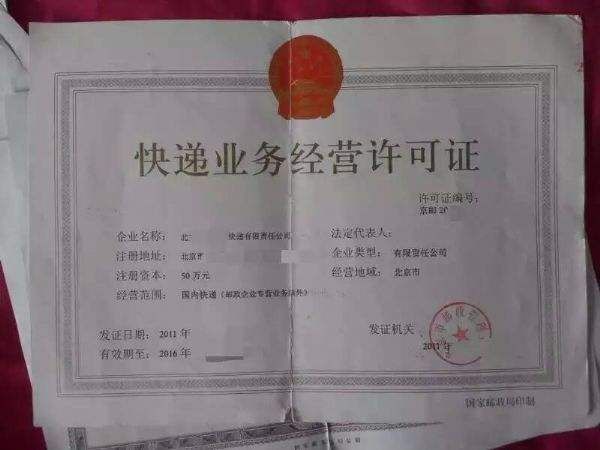 快递业务经营许可证
许可证编号:
京邮 20
企业名称: 北 快递有限责任公司
法定代表人:
注册地址: 北京市
企业类型: 有限责任公司
注册资本: 50 万元
经营地域: 北京市
经营范围: 国内快递(邮政企业专营业务除外)
发证日期: 2011 年
发证机关
2011 年
有效期至: 2016 年
国家邮政局印制